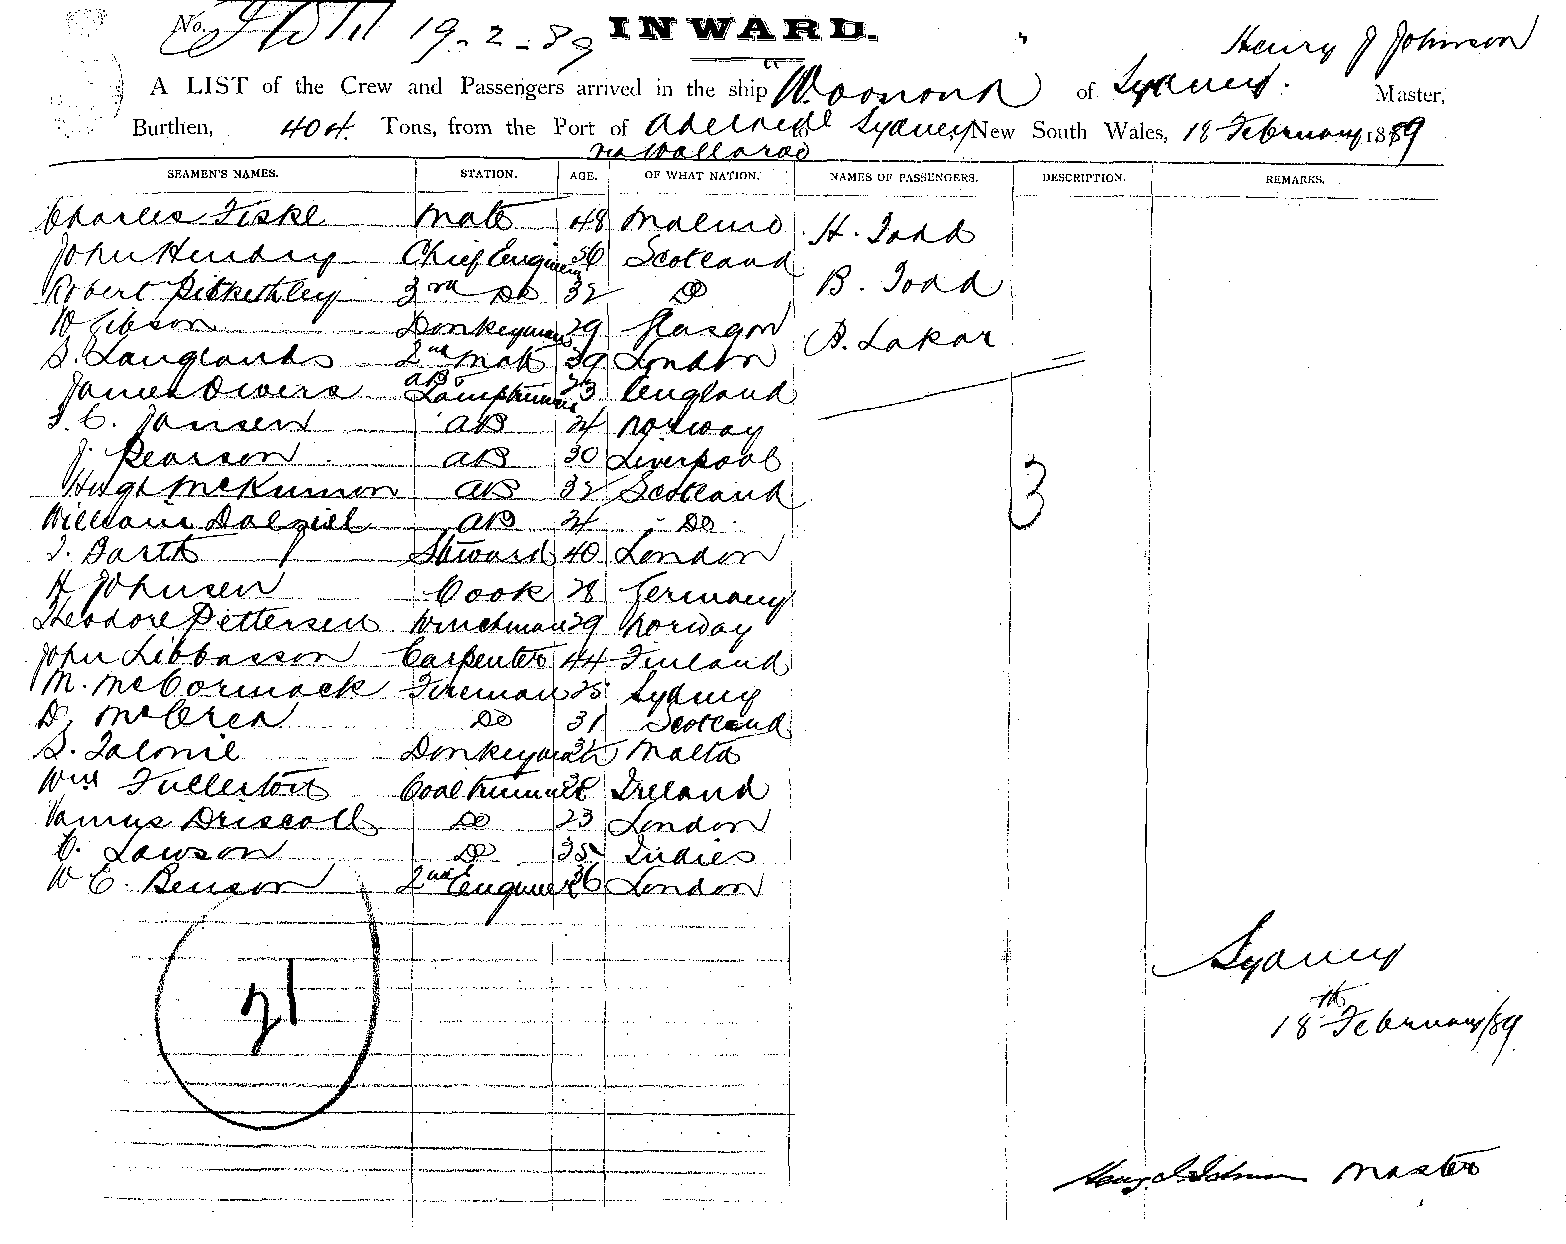 No. 19-2-89 INWARD. Henry J Johnson
A LIST of the Crew and Passengers arrived in the ship "Woonona" of Sydney. Master,
Burthen, 404 Tons, from the Port of Adelaide to Sydney, New South Wales, 18 February 1889
via Wallaroo
SEAMEN'S NAMES. STATION. AGE. OF WHAT NATION. NAMES OF PASSENGERS. DESCRIPTION. REMARKS.
Charles Fiske Mate 48
John Hendry Chief Engineer 56 Scotland
Robert Pitkethley 3rd Do 32 Do
W Gibson Donkeyman 29 Glasgow
S. Langlands 2nd Mate 39 London
James Owers AB & Lamptrimmer 23 England
J. C. Jansen AB 24 Norway
J. Pearson AB 30 Liverpool
Hugh McKinnon AB 32 Scotland
William Dalziel AB 24 Do
J. Barth Steward 40 London
H Johnsen Cook 28 Germany
Theodore Pettersen Winchman 29 Norway
John Libbasson Carpenter 44 Finland
M. McCormack Fireman 25 Sydney
D. McCrea Do 31 Scotland
S. Donkeyman Malta
Wm Fullerton Coal trimmer 38 Ireland
James Driscoll Do 23 London
C. Lawson Do 35 Indies
W C. Benson 2nd Engineer 36 London
H. Todd
B. Todd
B. Lakar
3
21
Sydney
18th February/89
Henry J Johnson Master